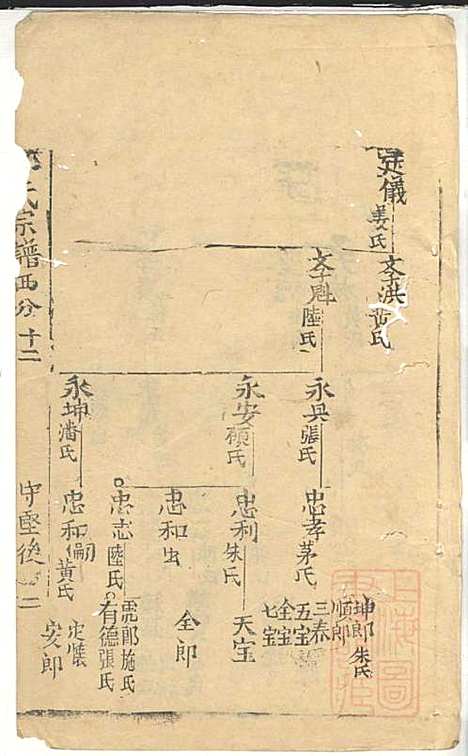 廷儀
姜氏
文洪
黃氏
文魁
陸氏
永兵
張氏
永安
顧氏
永坤
潘氏
忠孝
茅氏
忠利
朱氏
忠和
出
忠志
陸氏
忠和
嗣
黃氏
坤郎
朱氏
順郎
三泰
五宝
全宝
七宝
天宝
全郎
虎郎
施氏
有德
張氏
定儀
安郎
氏宗譜西分
十二
守堅後
上海圖